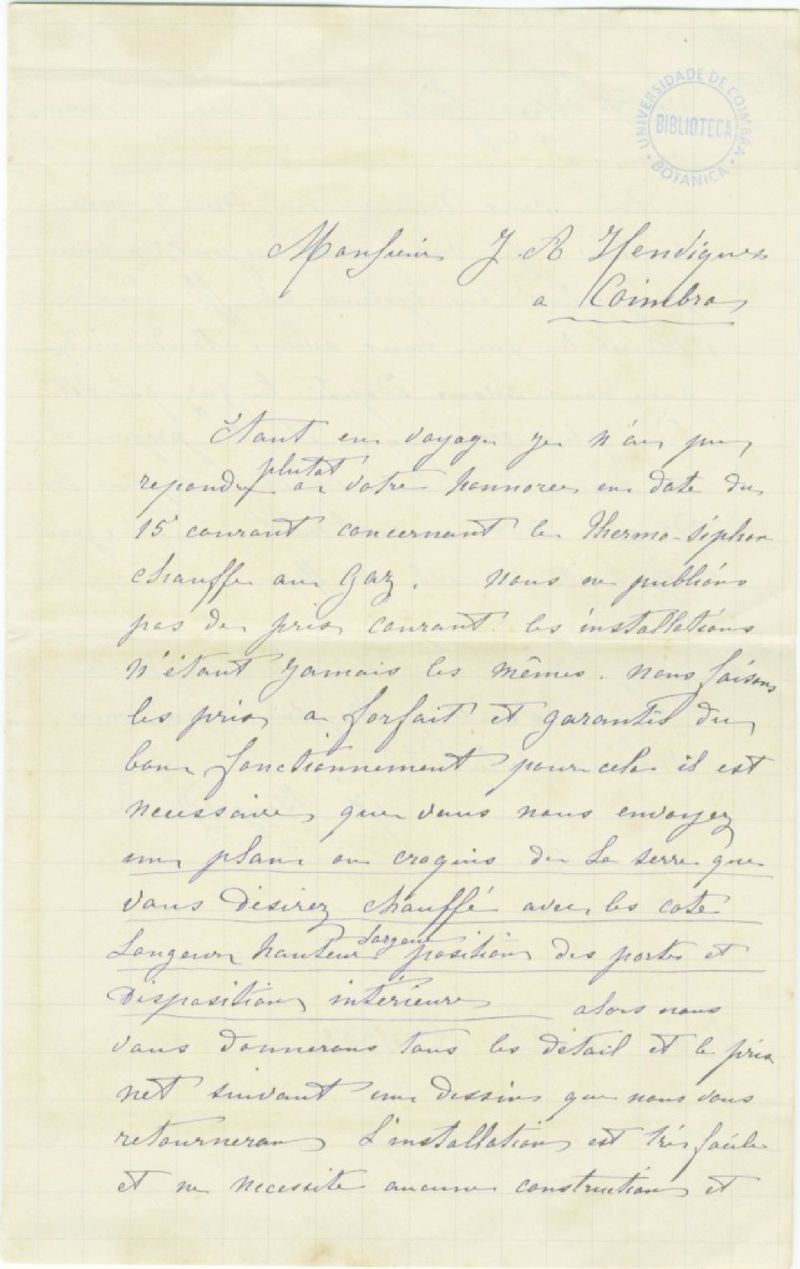 UNIVERSIDADE DE COIMBRA
BIBLIOTECA
BOTANICA
Monsieur J A Henriques
a Coimbra
Etant en voyage je n'ai pu
plutat
repondre a votre honnoree en date du
15 courant concernant le thermo-siphon
chauffe au Gaz. Nous ne publions
pas de prix courant les installations
n'étant jamais les mêmes. nous faisons
les prix a forfait et garantis du
bon fonctionnement pour cela il est
necessaire que vous nous envoyez
un plan ou croquis de la serre que
vous désirez chauffé avec les cote
Largeur
Longeur hauteur position des portes et
Disposition intérieure alors nous
vous donnerons tous les détail et le prix
net suivant un dessin que nous vous
retourneron L'installation est très facile
et ne necessite aucune construction et